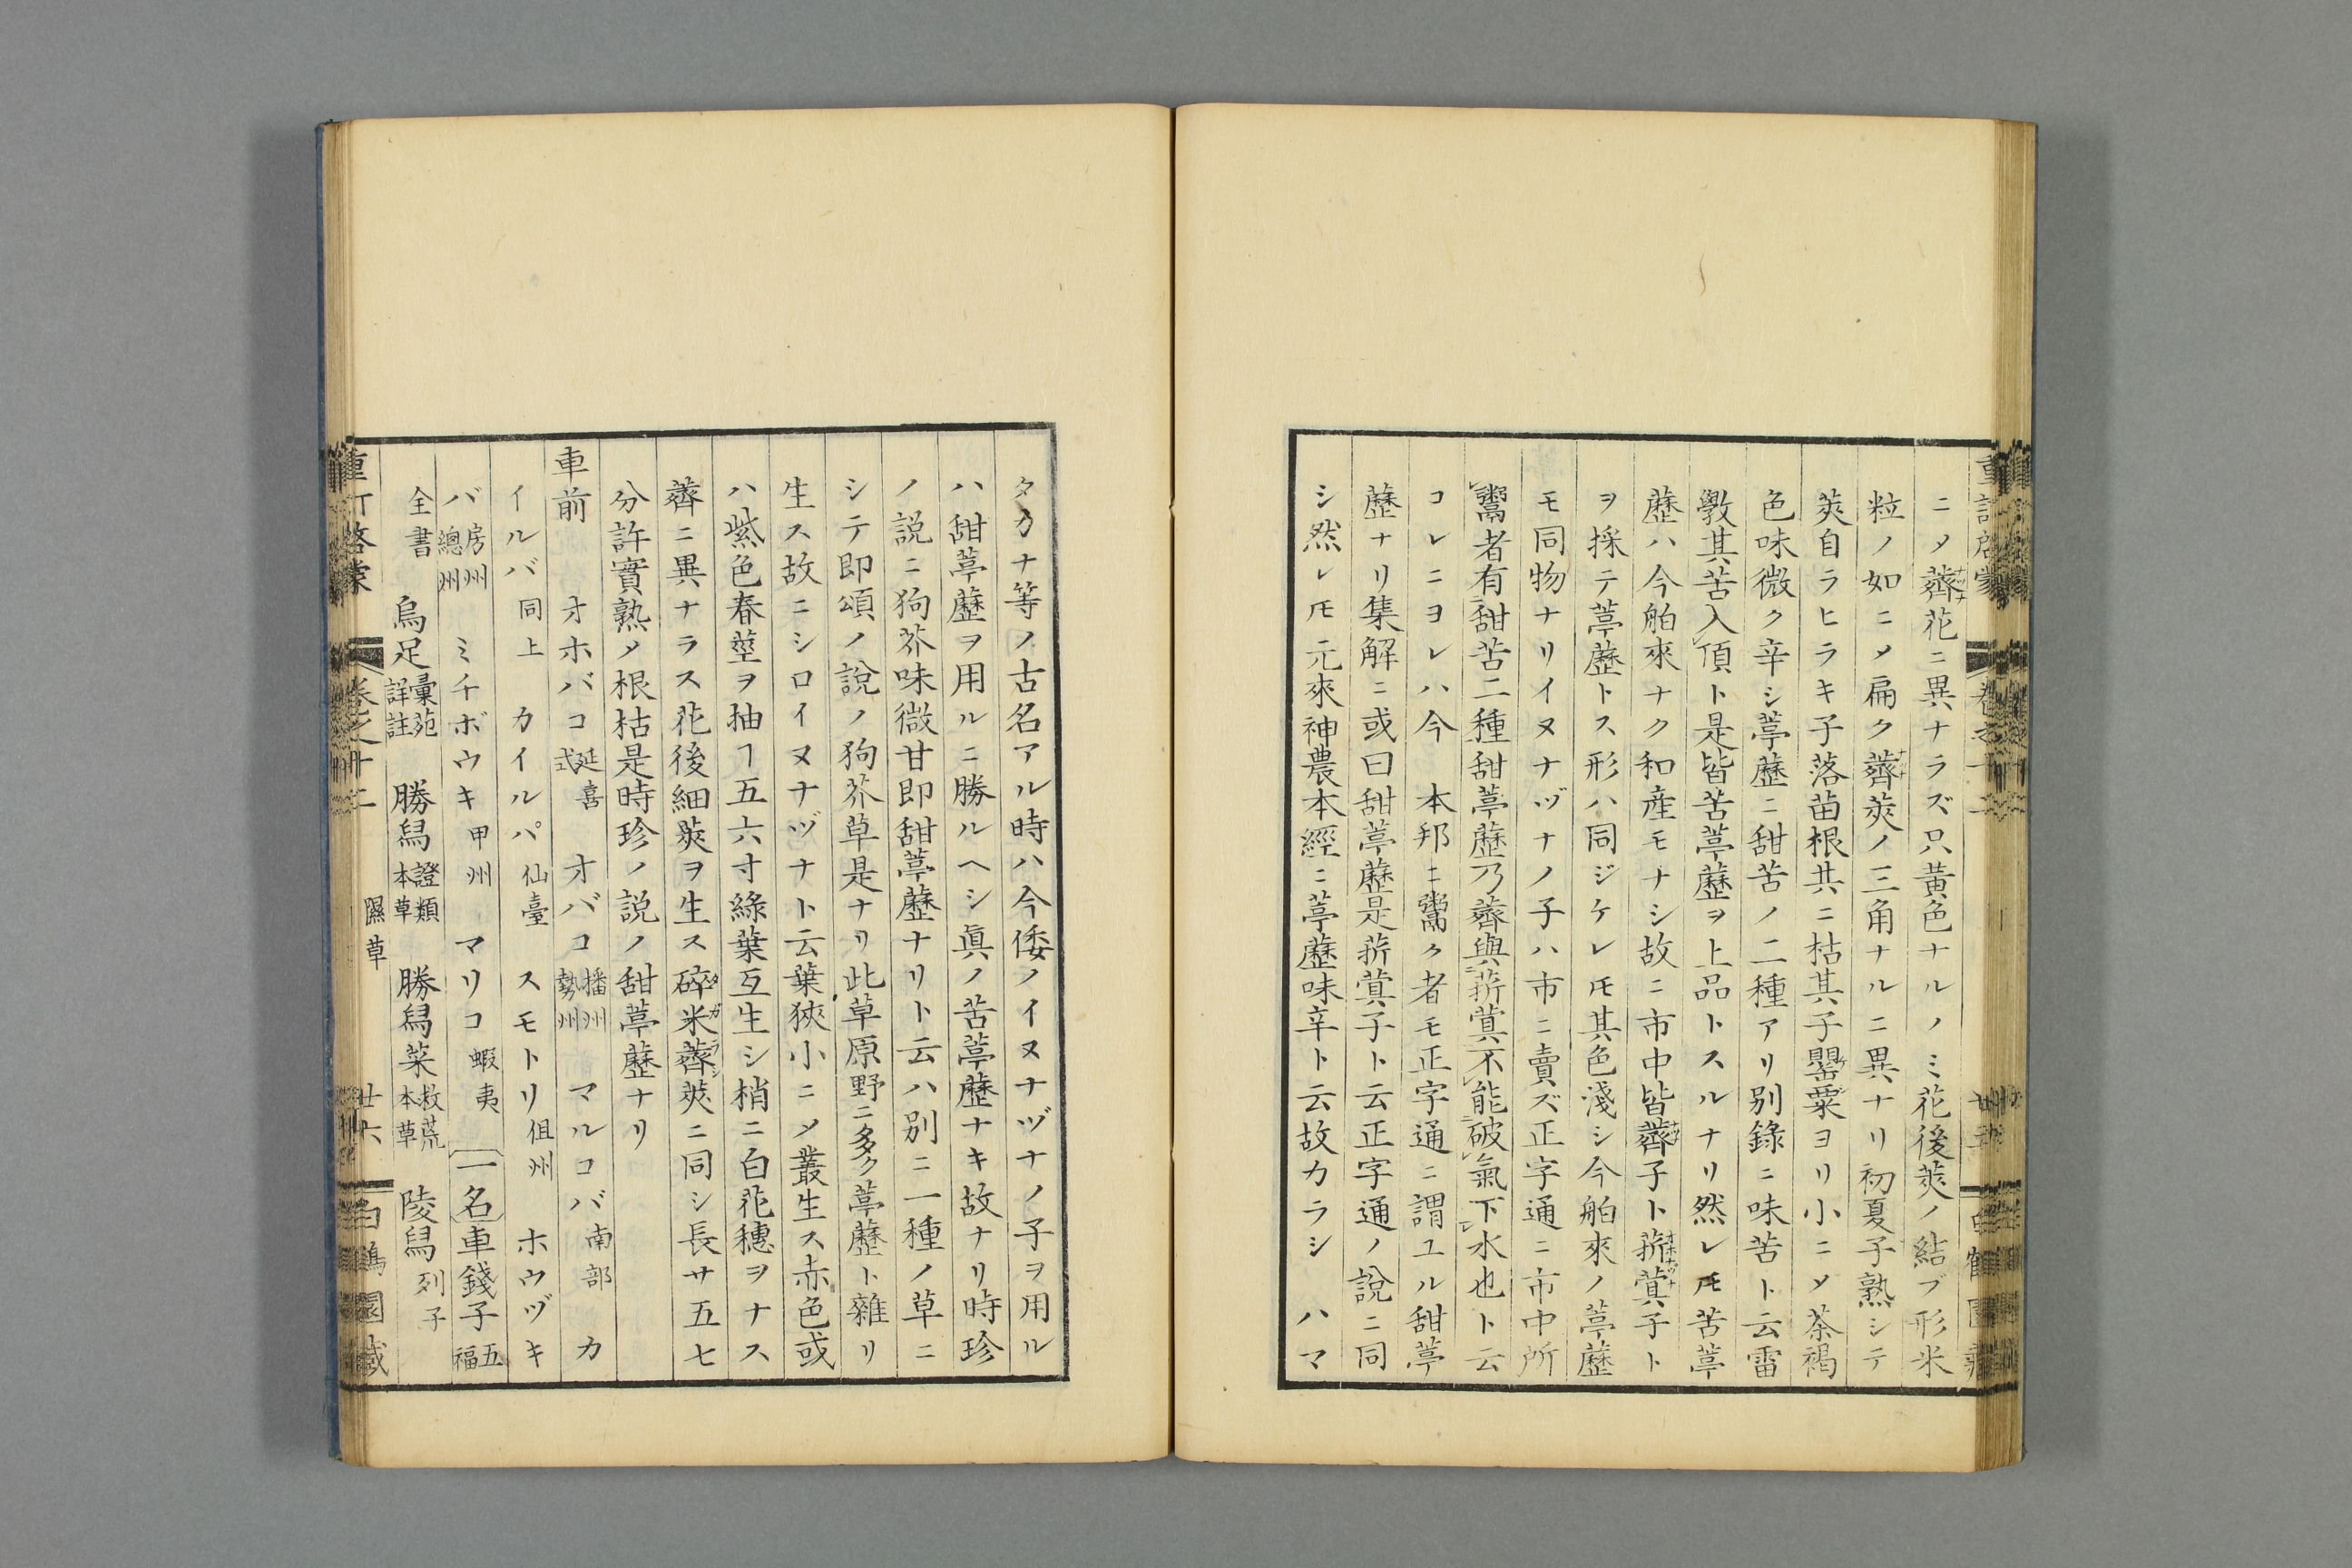 ニ〆薺花ニ異ナラズ只黃色ナルノミ花後莢ノ結ブ形米
粒ノ如ニ〆扁ク薺莢ノ三角ナルニ異ナリ初夏子熟シテ
莢自ラヒラキ子落苗根共ニ枯其子罌粟ヨリ小ニ〆茶褐
色味微ク辛シ葶藶ニ甜苦ノ二種アリ別錄ニ味苦ト云雷
斆其苦入頂ト是皆苦葶藶ヲ上品トスルナリ然レ𪜈苦葶
藶ハ今舶來ナク和産モナシ故ニ市中皆薺子ト菥蓂子ト
ヲ採テ葶藶トス形ハ同ジケレ𪜈其色淺シ今舶來ノ葶藶
モ同物ナリイヌナヅナノ子ハ市ニ賣ズ正字通ニ市中所
鬻者有甜苦二種甜葶藶乃薺與菥蓂不能破氣下水也ト云
コレニヨレハ今　本邦ニ鬻ク者モ正字通ニ謂ユル甜葶
藶ナリ集解ニ或曰甜葶藶是菥蓂子ト云正字通ノ說ニ同
シ然レ𪜈元來神農本經ニ葶藶味辛ト云故カラシ　ハマ
タカナ等ノ古名アル時ハ今倭ノイヌナヅナノ子ヲ用ル
ハ甜葶藶ヲ用ルニ勝ルヘシ眞ノ苦葶藶ナキ故ナリ時珍
ノ説ニ狗芥味微甘即甜葶藶ナリト云ハ別ニ一種ノ草ニ
シテ即頌ノ說ノ狗芥草是ナリ此草原野ニ多ク葶藶ト雜リ
生ス故ニシロイヌナヅナト云葉狹小ニ〆叢生ス赤色或
ハ紫色春莖ヲ抽ヿ五六寸綠葉互生シ梢ニ白花穗ヲナス
薺ニ異ナラス花後細莢ヲ生ス碎米薺莢ニ同シ長サ五七
分許實熟〆根枯是時珍ノ説ノ甜葶藶ナリ
車前　オホバコ延喜式　オバコ播州勢州　マルコバ南部　カ
イルバ同上　カイルパ仙臺　スモトリ但州　ホウヅキ
バ房州總州　ミチボウキ甲州　マリコ蝦夷　一名車錢子五福
全書　烏足彙苑詳註　勝舄證類本草　勝舄菜救荒本草　陵舄列子
重訂啓蒙　卷之十二　隰草　廿六